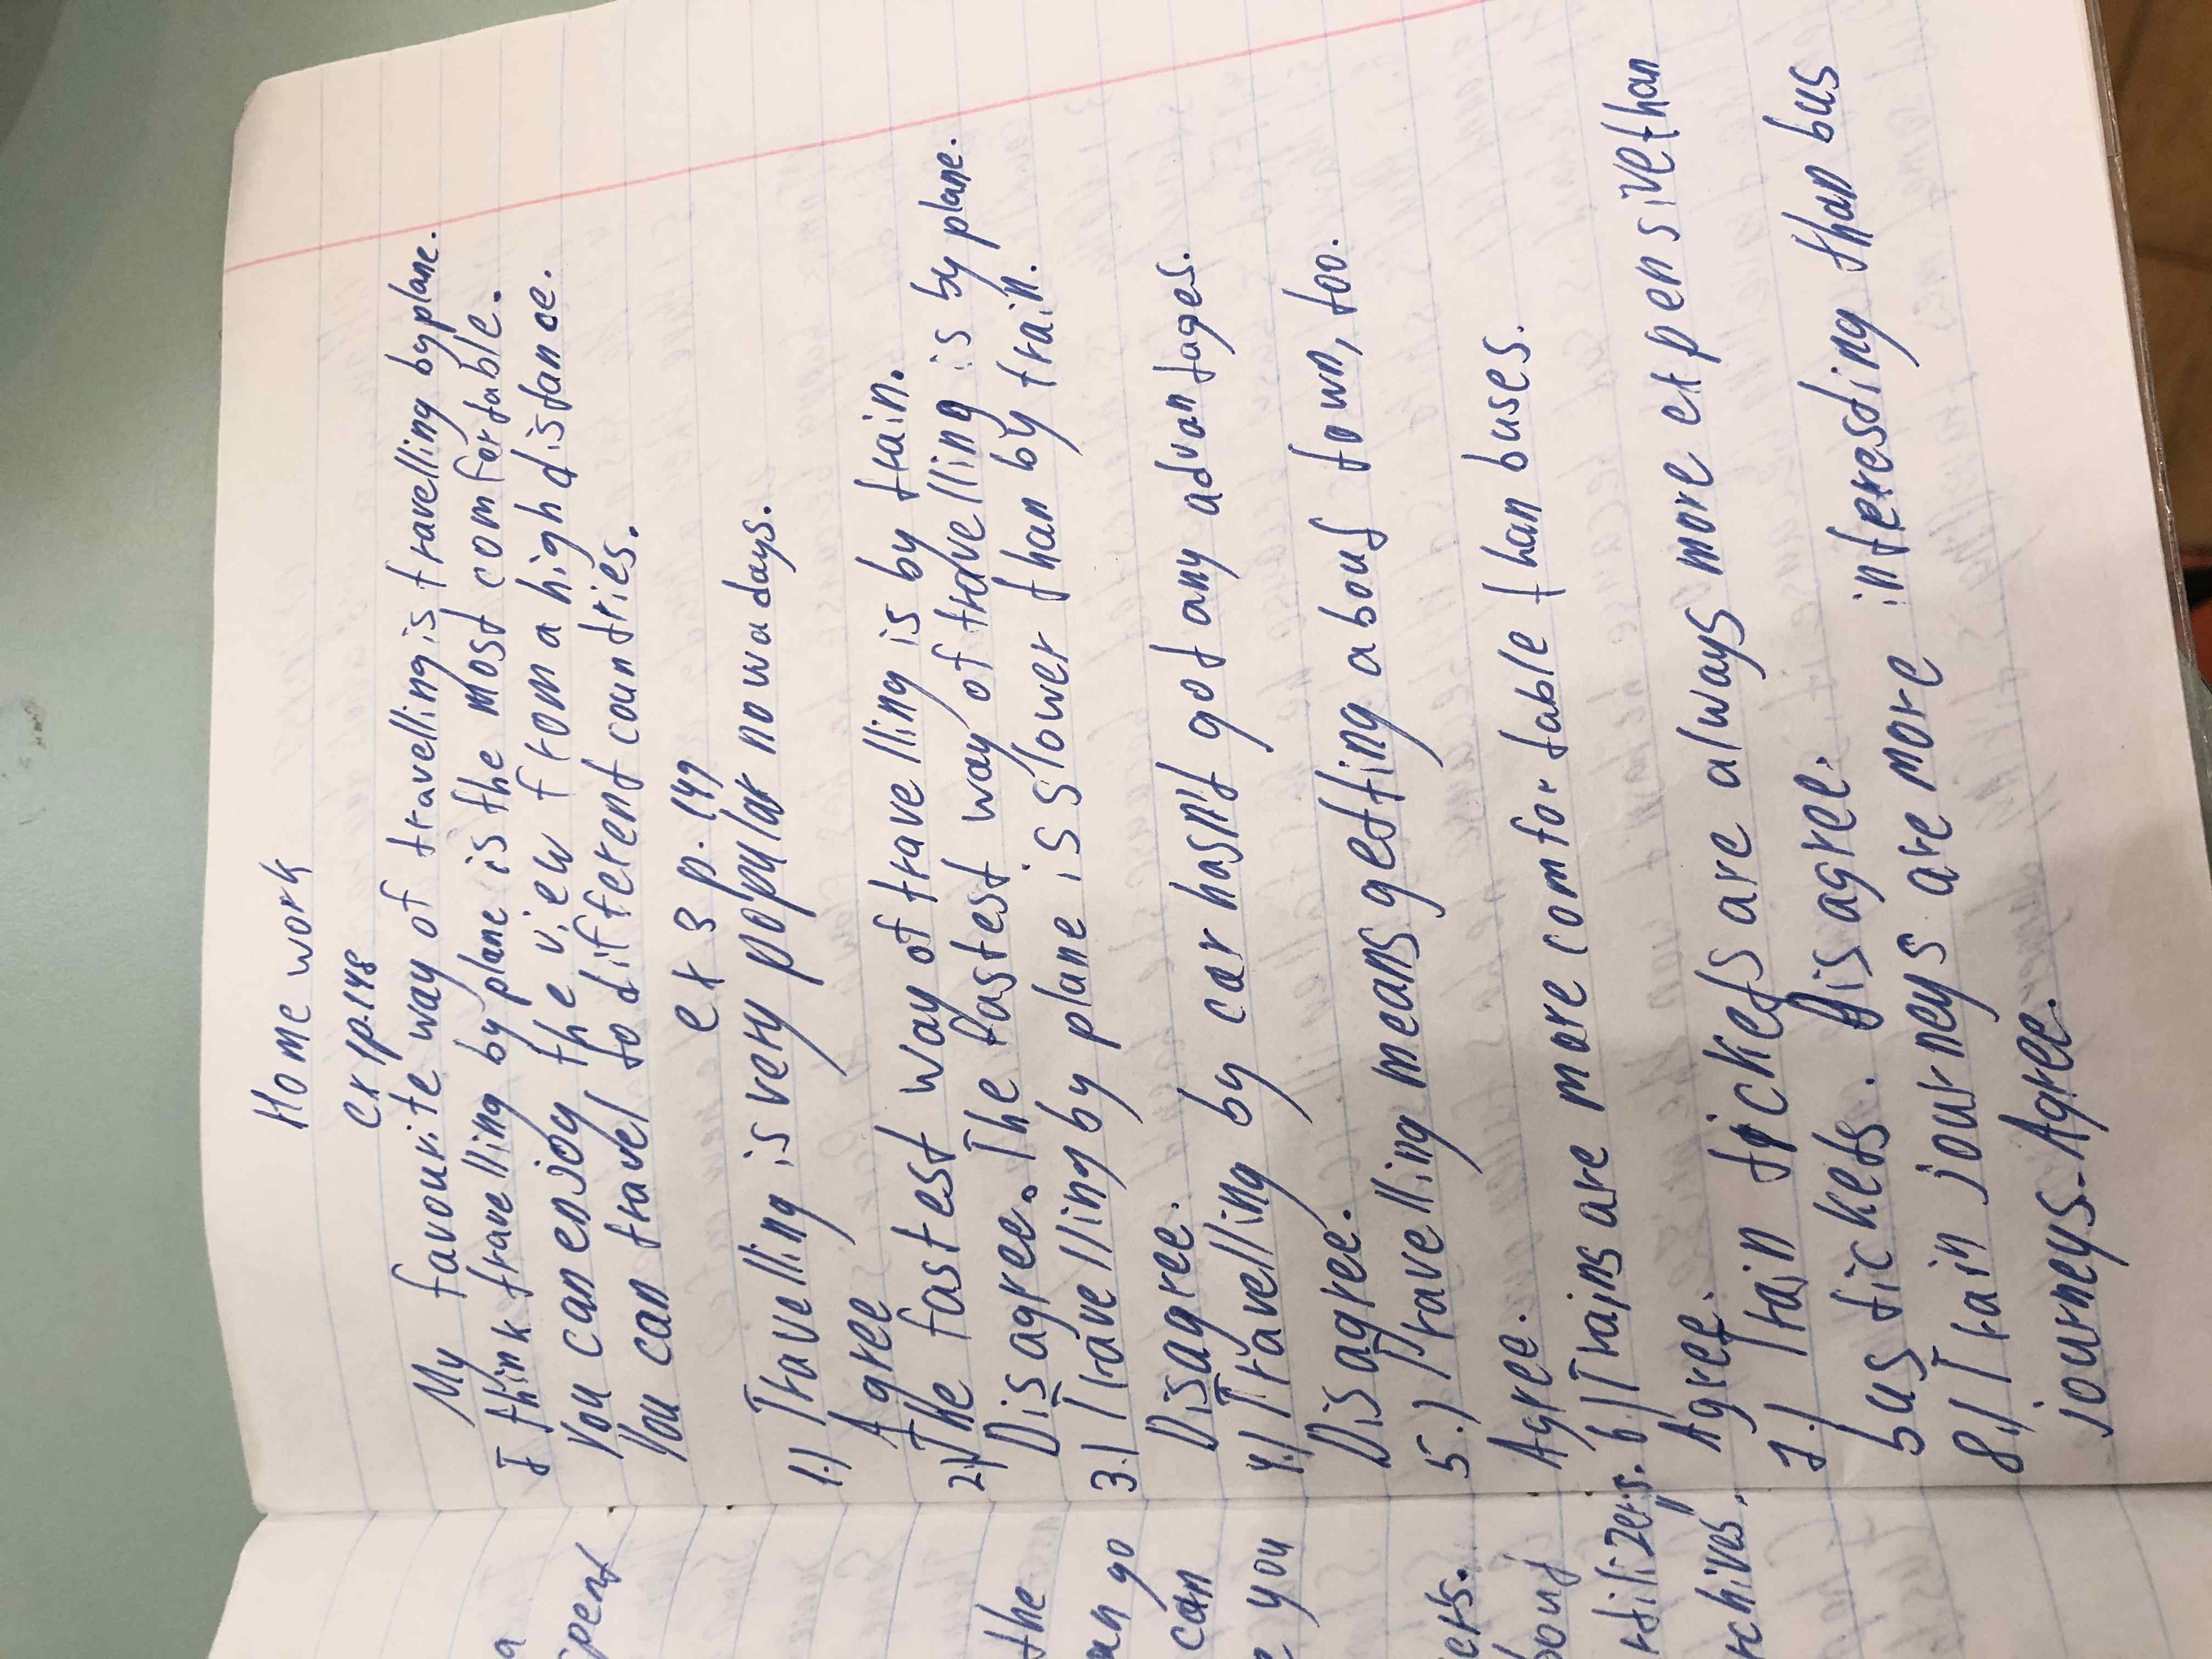 Home work
ex 1 p.148
My favourite way of travelling is travelling by plane.
I think travelling by plane is the most comfortable.
You can enjoy the view from a high distance.
You can travel to different countries.
ex 3 p.149
1.) Travelling is very popular nowadays.
Agree
2.) The fastest way of travelling is by train.
Disagree. The fastest way of travelling is by plane.
3.) Travelling by plane is slower than by train.
Disagree.
4.) Travelling by car hasn't got any advantages.
Disagree.
5.) Travelling means getting about town, too.
Agree.
6.) Trains are more comfortable than buses.
Agree.
7.) Train tickets are always more expensive than
bus tickets. Disagree.
8.) Train journeys are more interesting than bus
journeys. Agree.
a
spent
the
go
can
you